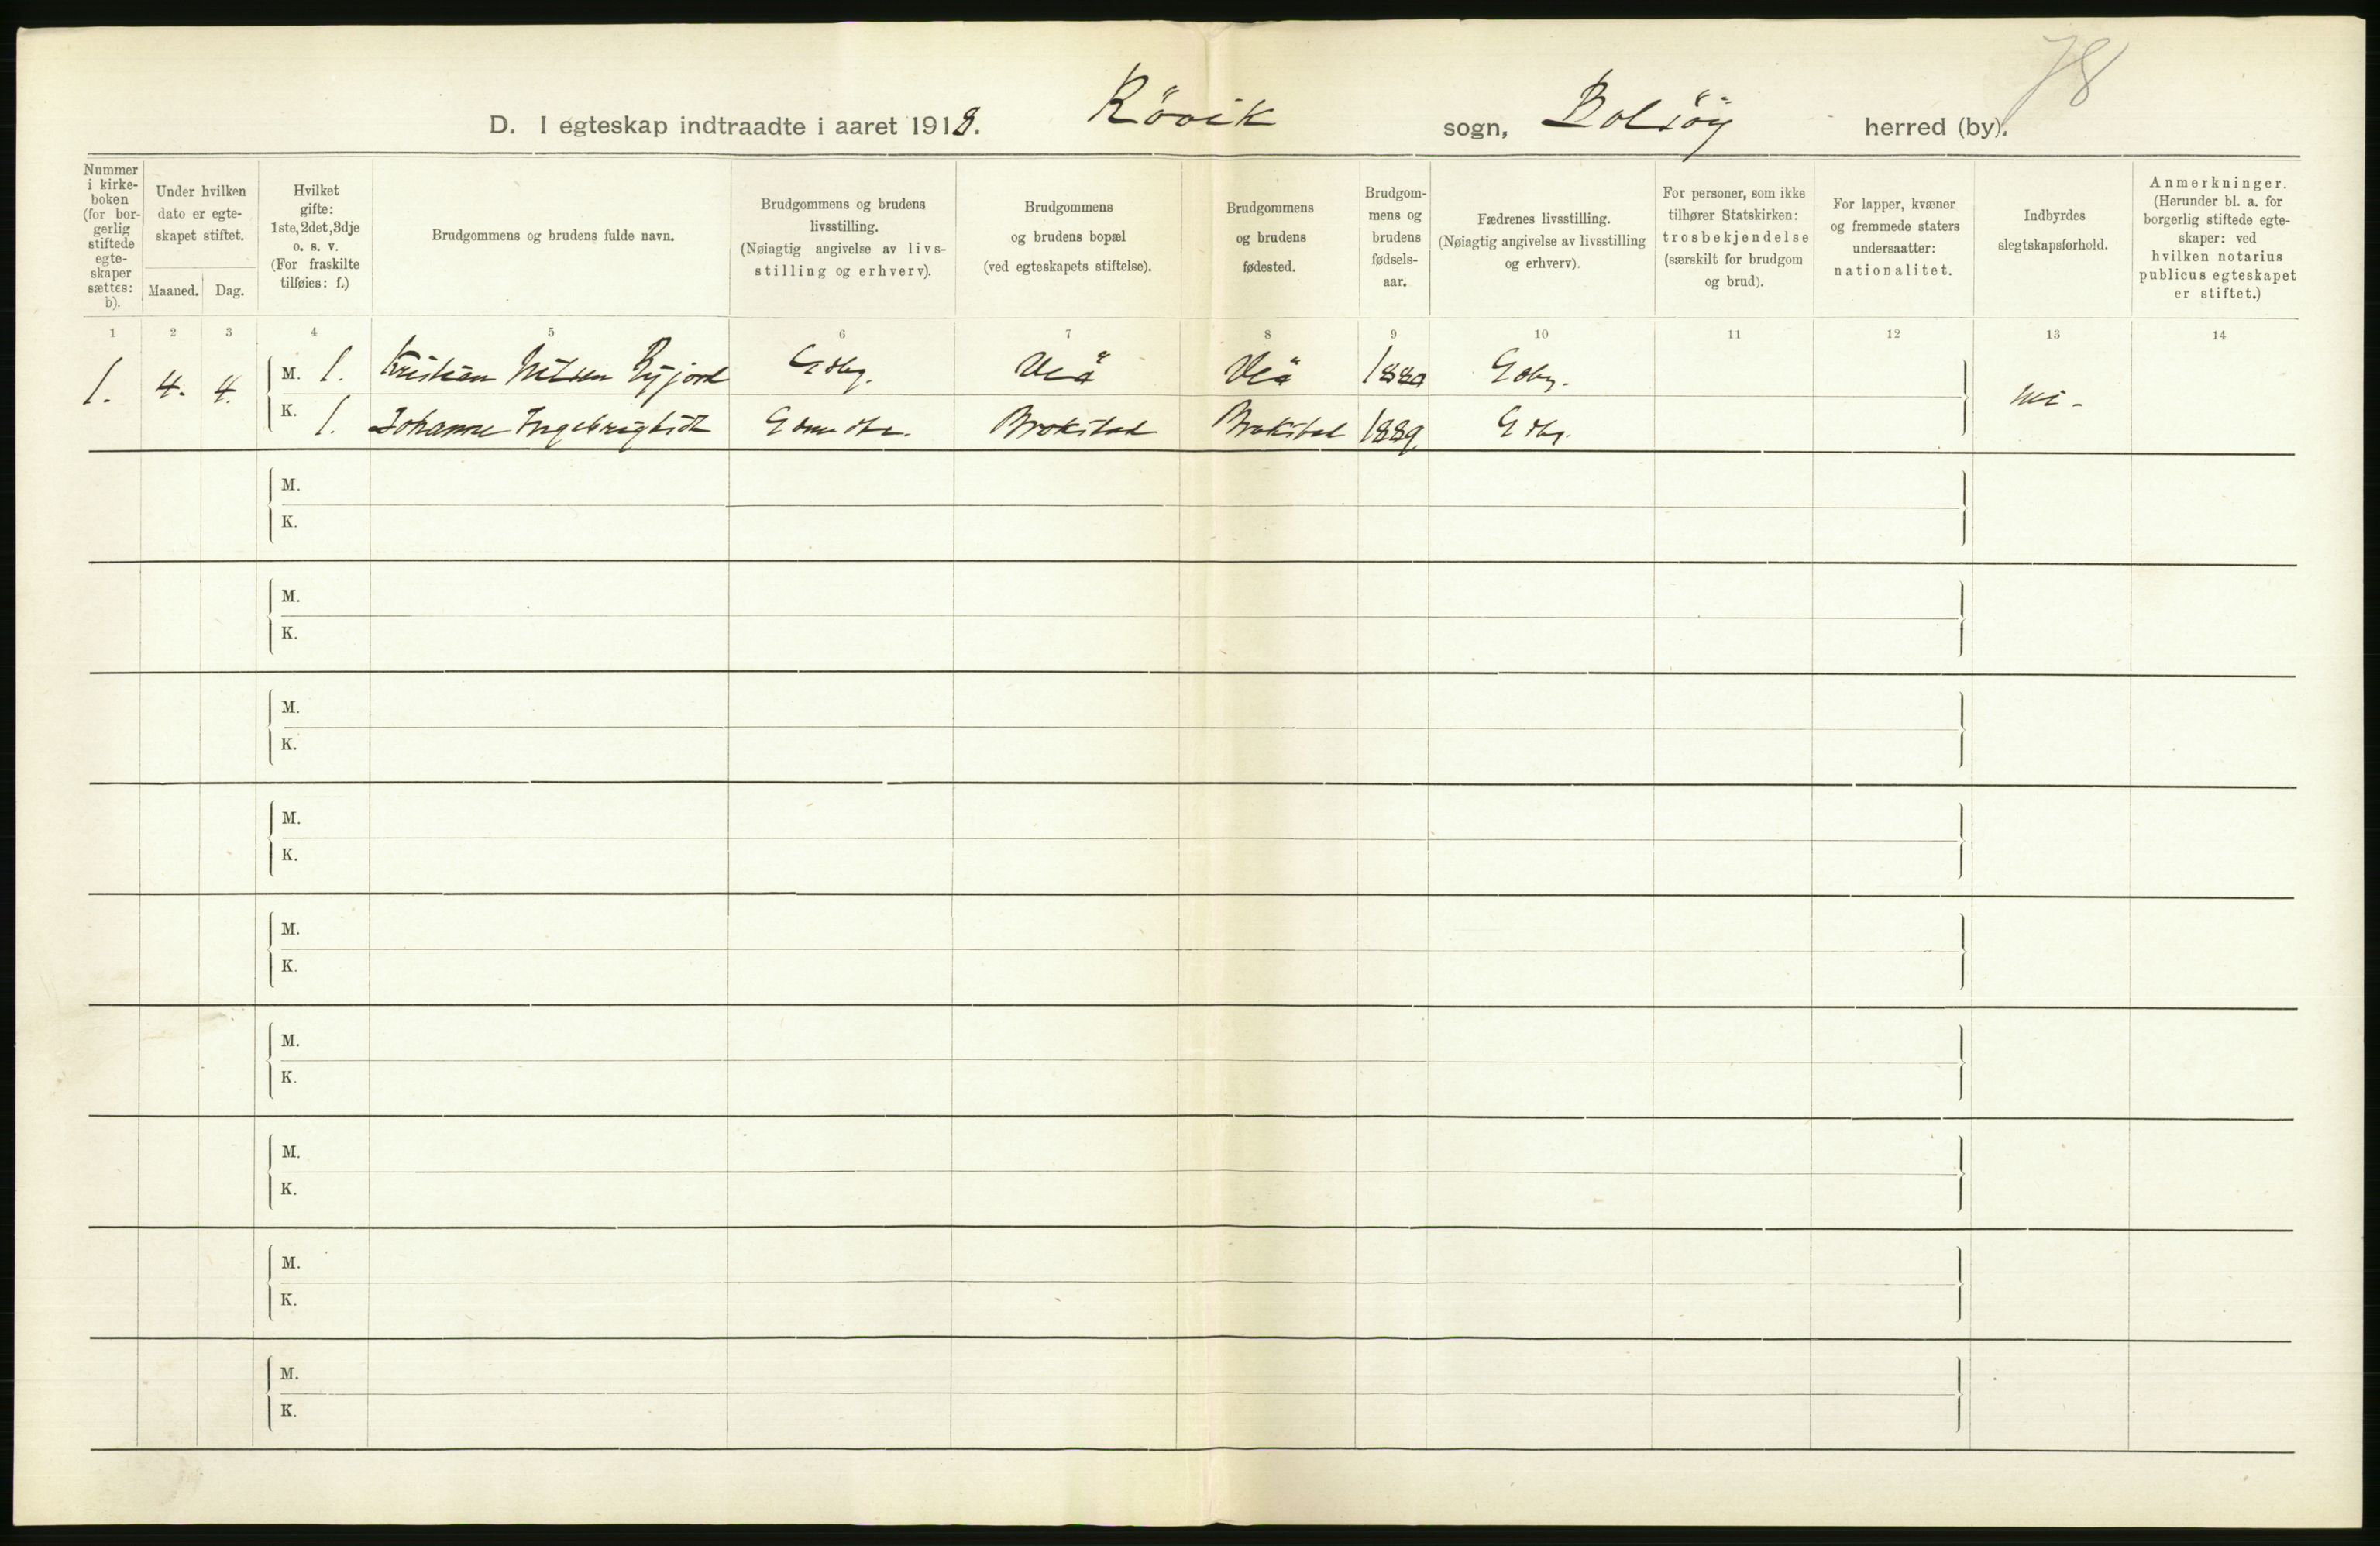 78
D. I egteskap indtraadte i aaret 1918. Rövik sogn, Bolsöy herred (by).
Nummer i kirke-boken (for bor-gerlig stiftede egte-skaper sættes: b).
Under hvilken dato er egte-skapet stiftet.
Maaned. Dag.
Hvilket gifte: 1ste, 2det, 3dje o. s. v. (For fraskilte tilføies: f.)
Brudgommens og brudens fulde navn.
Brudgommens og brudens livsstilling. (Nøiagtig angivelse av livs-stilling og erhverv).
Brudgommens og brudens bopæl (ved egteskapets stiftelse).
Brudgommens og brudens fødested.
Brudgom-mens og brudens fødsels-aar.
Fædrenes livsstilling. (Nøiagtig angivelse av livsstilling og erhverv).
For personer, som ikke tilhører Statskirken: trosbekjendelse (særskilt for brudgom og brud).
For lapper, kvæner og fremmede staters undersaatter: nationalitet.
Indbyrdes slegtskapsforhold.
Anmerkninger. (Herunder bl. a. for borgerlig stiftede egte-skaper: ved hvilken notarius publicus egteskapet er stiftet.)
1 2 3 4 5 6 7 8 9 10 11 12 13 14
1. 4. 4. M. 1. Kristian Nilsen Veå Veå 1880
K. 1. Johanne Brokstad Brokstad 1889
M.
K.
M.
K.
M.
K.
M.
K.
M.
K.
M.
K.
M.
K.
M.
K.
M.
K.